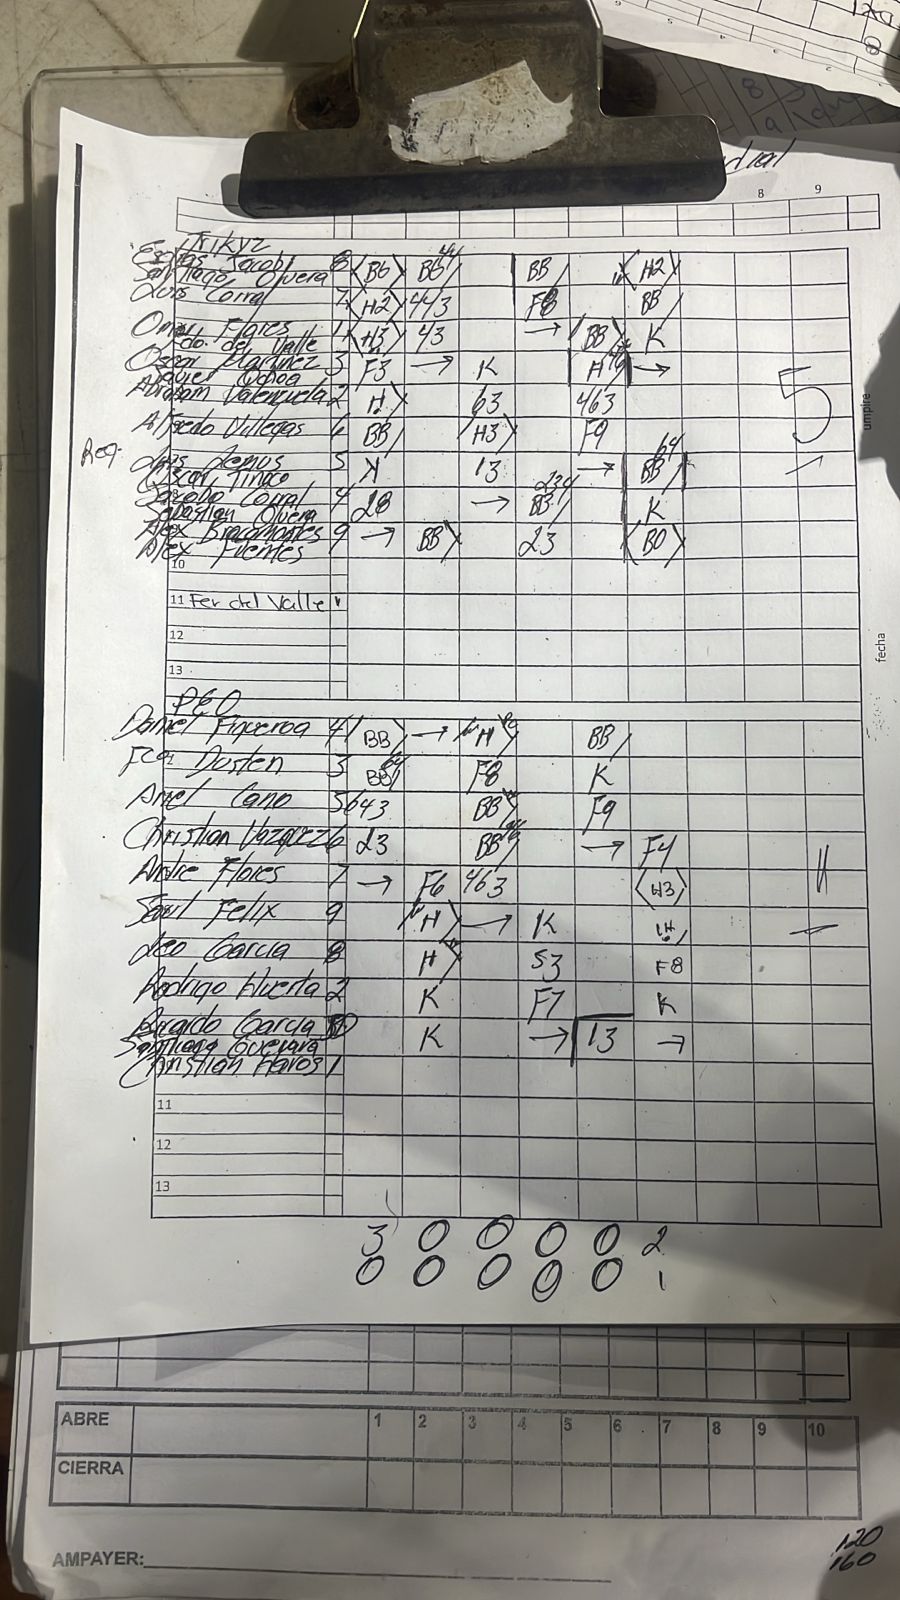 8 9
Trikyz
Esquias Jacobi 8 BB BB BB H2
Santiago Olvera
Luis Corral 7 H2 443 F8 BB
Omar Flores 1 H3 43 → BB K
Fdo. del Valle
Oscar Martinez 3 F3 → K H →
Javier Ochoa
Abraham Valenzuela 2 H 63 463
Alfredo Villegas 6 BB H3 F9
Luis Lemus 5 K 13 → BB
Oscar Tinoco
Jacobo Corral 4 28 → BB K
Sebastian Olvera
Alex Bracamontes 9 → BB 23 BB
Alex Fuentes
10
11 Fer del Valle
12
13
5
umpire
fecha
PEO
Daniel Figueroa 41 BB → H BB
Dorten 3 BB F8 K
Ariel Cano 5 643 BB F9
Christian Vazquez 6 23 BB → F4
Andre Flores 7 → F6 463 H3
Saul Felix 9 H → K
Leo Garcia 8 H 53 F8
Rodrigo Huerta 2 K F7 K
Ricardo Garcia K → 13 →
Santiago Guevara
Christian Haros 1
11
12
13
3 0 0 0 0 2
0 0 0 0 0 1
ABRE 1 2 3 4 5 6 7 8 9 10
CIERRA
120
160
AMPAYER: